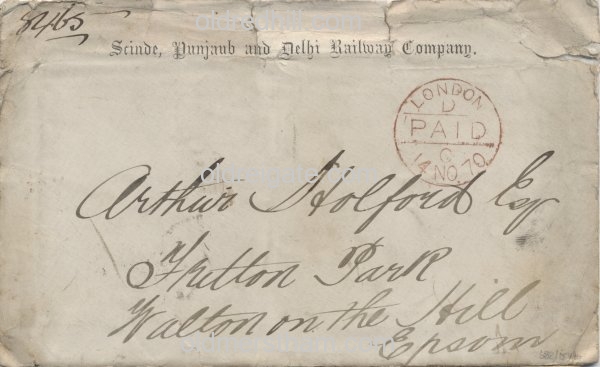 8465
Scinde, Punjaub and Delhi Railway Company.
LONDON
D
PAID
C
14 NO 70
Arthur Holford Esq
Fritton Park
Walton on the Hill
Epsom